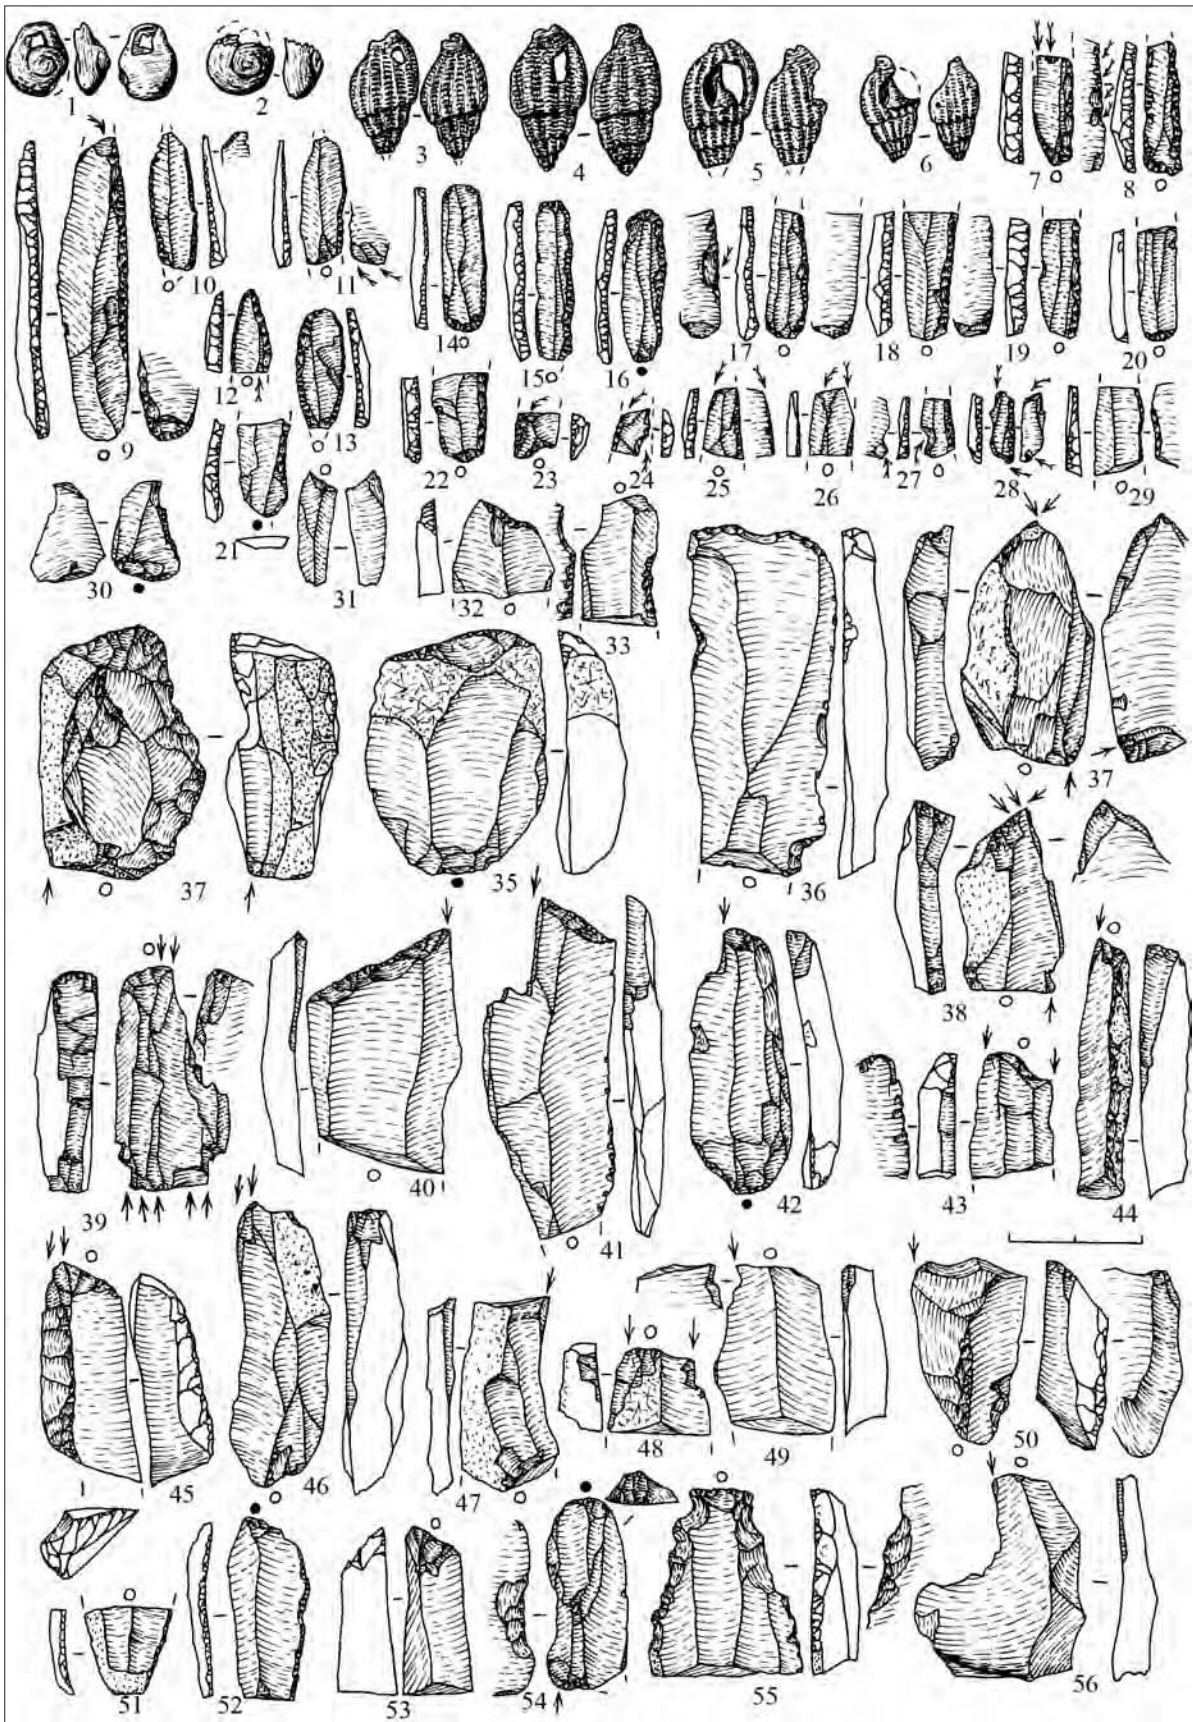 1 2 3 4 5 6 7 8
9 10 11 12 13 14 15 16 17 18 19 20
21 22 23 24 25 26 27 28 29
30 31 32 33
37 35 36 37
38
39 40 41 42 43 44
45 46 47 48 49 50
51 52 53 54 55 56